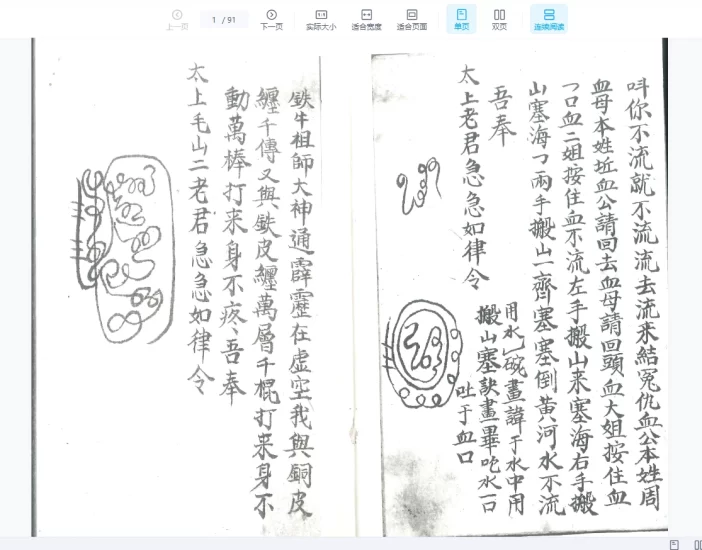 上一页
1 / 91
下一页
实际大小
适合宽度
适合页面
单页
双页
连续阅读
呌你不流就不流流去流来結冤仇血公本姓周
血母本姓坵血公請回去血母請回頭血大姐按住血
㇇口血二姐按住血不流左手搬山来塞海右手搬
山塞海㇇兩手搬山一齊塞塞倒黃河水不流
吾奉
太上老君急急如律令
用水一碗畫諱于水中用
搬山塞訣畫畢吃水一口
吐于血口
鉄牛祖師大神通霹靂在虛空我與銅皮
纏千傳又與鉄皮纏萬層千棍打来身不
動萬棒打来身不疼、吾奉
太上毛山二老君急急如律令